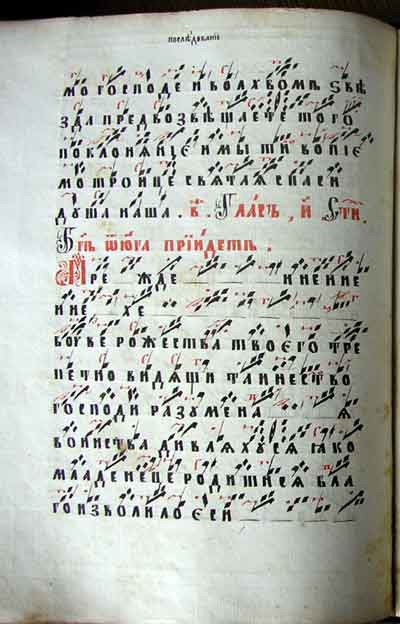 послѣдованiе
мо господе и волхвомъ ѕвѣ
зда предвозвѣщаете того
поклонянiе и мы ти вопiе
мо троице святая спаси
душа наша . в҃ . Гласъ , и҃ Сти .
прiидетъ .
Пре жде нине ние
ние хе
воѹ ве рожества твоего тре
петно видящи таинество
господи разумена я
воинства дивляхуся яко
младенеце родишися бла
гоизволило еси